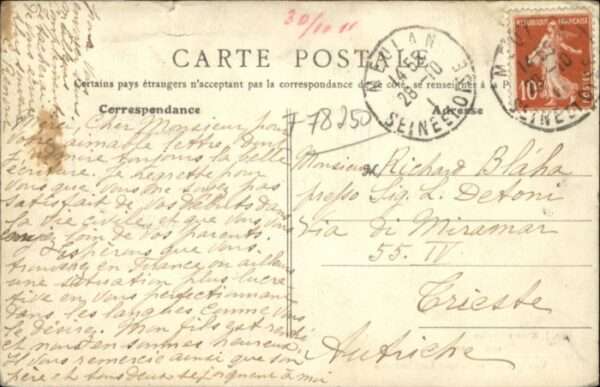 30/10 11
CARTE POSTALE
Certains pays étrangers n'acceptent pas la correspondance de ce côté, se renseigner à la P
Correspondance
Adresse
MEULAN
14 55
28 -10
11
SEINE & OISE
REPUBLIQUE FRANÇAISE
10
POSTES
78250
Cher Monsieur pour
votre aimable lettre dont
j'admire toujours la belle
écriture. Je regrette pour
vous que vous ne soyez pas
satisfait de vos débuts dans
la vie civile, et que vous
loin de vos parents.
Espérons que vous
trouverez en France ou ailleurs
une situation plus lucra
tive en vous perfectionnant
dans les langues comme vous
le désirez. Mon fils est
et nous en sommes heureux,
Il vous remercie ainsi que son
père et tous deux se joignent à moi
Monsieur Richard Bláha
presso Sig. L. Detoni
Via di Miramar
55. IV.
Trieste
Autriche